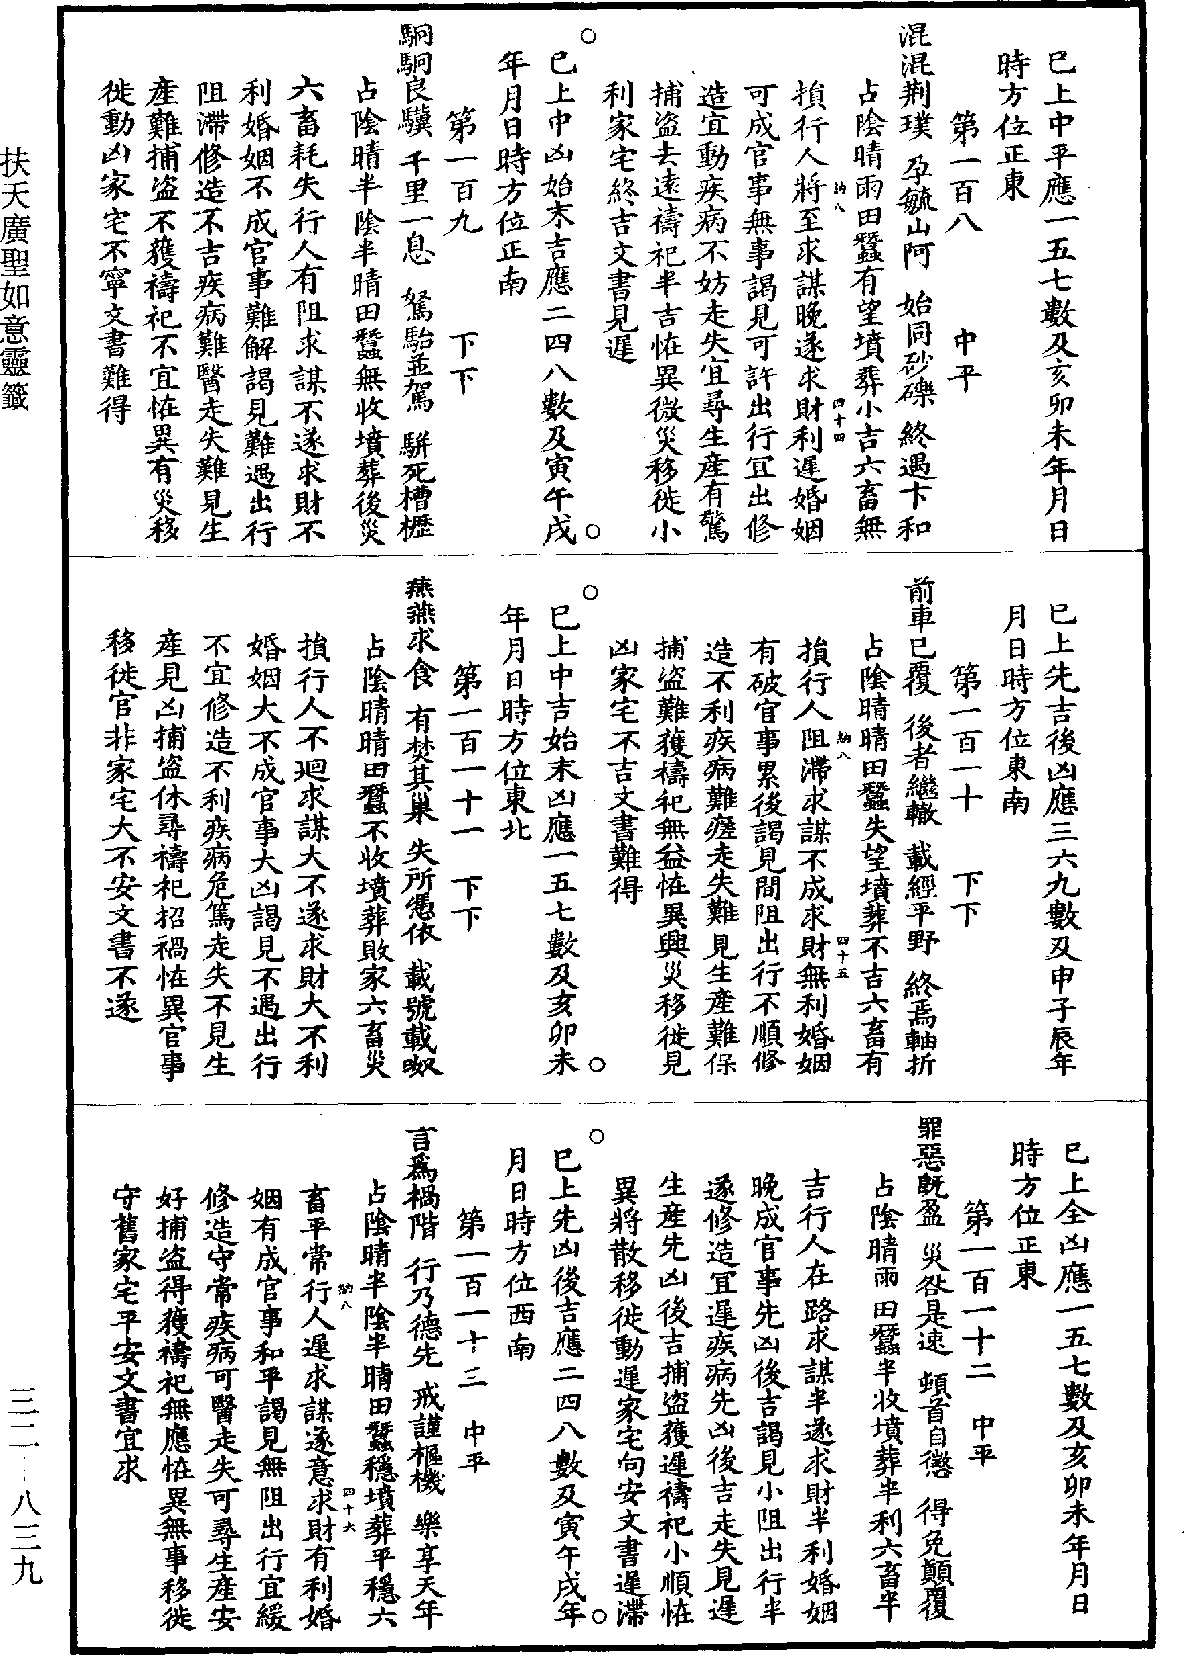 已上中平應一五七數及亥卯未年月日
時方位正東
第一百八　中平
混混荆璞　孕毓山阿　始同砂礫　終遇卞和
占陰晴雨田蠶有望墳葬小吉六畜無
損行人將至求謀晚遂求財利遲婚姻
納八　四十四
可成官事無事謁見可許出行冝出修
造宜動疾病不妨走失宜尋生産有驚
捕盜去遠禱祀半吉恠異微災移徙小
利家宅終吉文書見遲
○已上中凶始末吉應二四八數及寅午戌○
年月日時方位正南
第一百九　下下
駉駉良驥　千里一息　駑駘並駕　駢死槽櫪
占陰晴半陰半晴田蠶無收墳葬後災
六畜耗失行人有阻求謀不遂求財不
利婚姻不成官事難解謁見難遇出行
阻滯修造不吉疾病難醫走失難見生
產難捕盜不獲禱祀不宜恠異有災移
徙動凶家宅不寧文書難得
已上先吉後凶應三六九數及申子辰年
月日時方位東南
第一百一十　下下
前車已覆　後者繼轍　載經平野　終焉軸折
占陰晴晴田蠶失望墳葬不吉六畜有
損行人阻滯求謀不成求財無利婚姻
納八　四十五
有破官事累後謁見間阻出行不順修
造不利疾病難瘥走失難見生產難保
捕盜難獲禱祀無益恠異興災移徙見
凶家宅不吉文書難得
○已上中吉始末凶應一五七數及亥卯未○
年月日時方位東北
第一百一十一　下下
燕燕求食　有焚其巢　失所憑依　載號載呶
占陰晴晴田蠶不收墳葬敗家六畜災
損行人不廻求謀大不遂求財大不利
婚姻大不成官事大凶謁見不遇出行
不宜修造不利疾病危篤走失不見生
產見凶捕盜休尋禱祀招禍恠異官事
移徙官非家宅大不安文書不遂
已上全凶應一五七數及亥卯未年月日
時方位正東
第一百一十二　中平
罪惡旣盈　災咎是速　頓首自懲　得免顚覆
占陰晴雨田蠶半收墳葬半利六畜半
吉行人在路求謀半遂求財半利婚姻
晚成官事先凶後吉謁見小阻出行半
遂修造冝遲疾病先凶後吉走失見遲
生産先凶後吉捕盜獲遲禱祀小順恠
異將散移徙動遲家宅向安文書遲滯
○已上先凶後吉應二四八數及寅午戌年○
月日時方位西南
第一百一十三　中平
言爲禍階　行乃德先　戒謹樞機　樂享天年
占陰晴半陰半晴田蠶穩墳葬平穩六
畜平常行人遲求謀遂意求財有利婚
納八　四十六
姻有成官事和平謁見無阻出行宜緩
修造守常疾病可醫走失可尋生産安
好捕盜得獲禱祀無應恠異無事移徙
守舊家宅平安文書宜求
扶天廣聖如意靈籤
三二—八三九